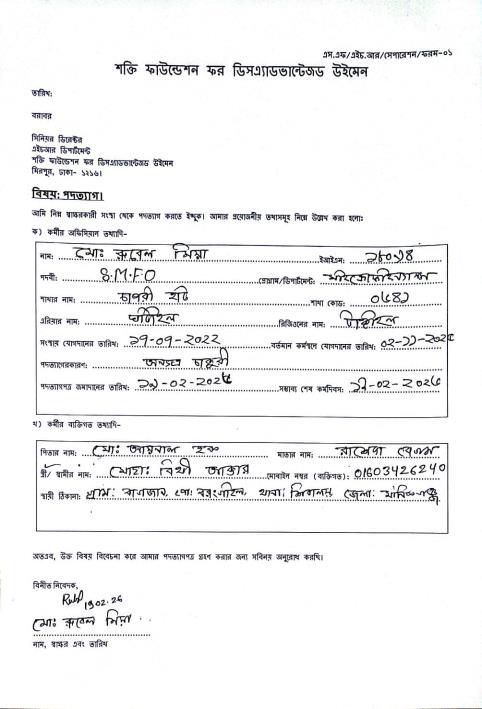 এস.এফ/এইচ.আর/সেপারেশন/ফরম-০১
শক্তি ফাউন্ডেশন ফর ডিসএ্যাডভান্টেজড উইমেন
তারিখ:
বরাবর
সিনিয়র ডিরেক্টর
এইচআর ডিপার্টমেন্ট
শক্তি ফাউন্ডেশন ফর ডিসএ্যাডভান্টেজড উইমেন
মিরপুর, ঢাকা- ১২১৬।
বিষয়: পদত্যাগ।
আমি নিম্ন স্বাক্ষরকারী সংস্থা থেকে পদত্যাগ করতে ইচ্ছুক। আমার প্রয়োজনীয় তথ্যসমূহ নিম্নে উল্লেখ করা হলো:
ক) কর্মীর অফিসিয়াল তথ্যাদি-
নাম: মো: রুবেল মিয়া ইআইএন:
পদবী: S.M.F.O প্রোগ্রাম/ডিপার্টমেন্ট: মাইক্রোফাইন্যান্স
শাখার নাম: হাট শাখা কোড:
এরিয়ার নাম: রিজিওনের নাম:
সংস্থায় যোগদানের তারিখ: ১৭-০৭-২০২২ বর্তমান কর্মস্থলে যোগদানের তারিখ:
পদত্যাগেরকারণ: অন্যত্র চাকুরী
পদত্যাগপত্র জমাদানের তারিখ: সম্ভাব্য শেষ কর্মদিবস:
খ) কর্মীর ব্যক্তিগত তথ্যাদি-
পিতার নাম: মো: হক মাতার নাম: রাশেদা বেগম
স্ত্রী/ স্বামীর নাম: মোছা: বিথী আক্তার মোবাইল নম্বর (ব্যক্তিগত): 01603426240
স্থায়ী ঠিকানা: গ্রাম: পো: থানা: শিবালয়, জেলা: মানিকগঞ্জ
অতএব, উক্ত বিষয় বিবেচনা করে আমার পদত্যাগপত্র গ্রহণ করার জন্য সবিনয় অনুরোধ করছি।
বিনীত নিবেদক,
19.02.26
মো: রুবেল মিয়া
নাম, স্বাক্ষর এবং তারিখ